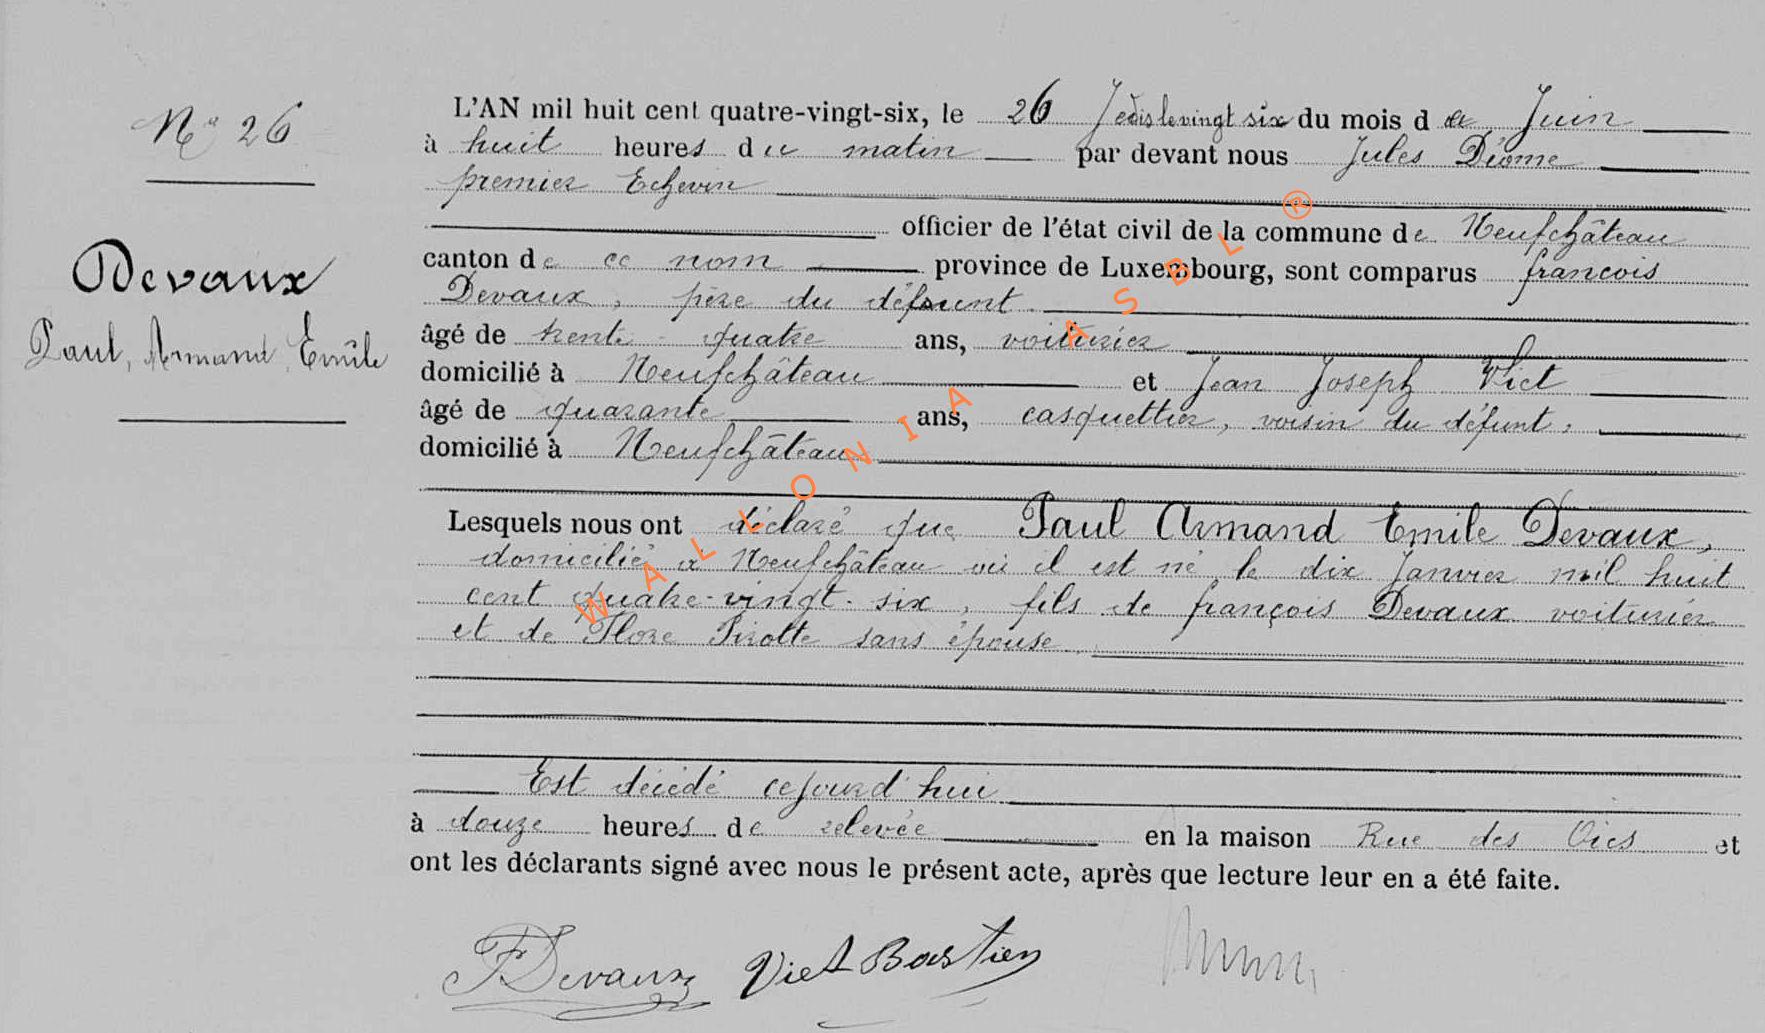 No 26
Devaux
Paul, Armand Emile
L'AN mil huit cent quatre-vingt-six, le 26 vingt six du mois d de Juin
à huit heures du matin par devant nous Jules
premier Echevin
officier de l'état civil de la commune de Neufchâteau
canton de ce nom province de Luxembourg, sont comparus françois
Devaux, père du défunt
âgé de trente-quatre ans, voiturier
domicilié à Neufchâteau et Jean Joseph Viet
âgé de quarante ans, casquettier, voisin du défunt,
domicilié à Neufchâteau
Lesquels nous ont déclaré que Paul Armand Emile Devaux,
domicilié à Neufchâteau où il est né le dix Janvier mil huit
cent quatre-vingt-six, fils de françois Devaux voiturier
et de Flore Pirotte sans épouse
Est décédé cejourd'hui
à douze heures de relevée en la maison Rue des Oies et
ont les déclarants signé avec nous le présent acte, après que lecture leur en a été faite.
FDevaux Viet Bastien
WALLONIA ASBL ®